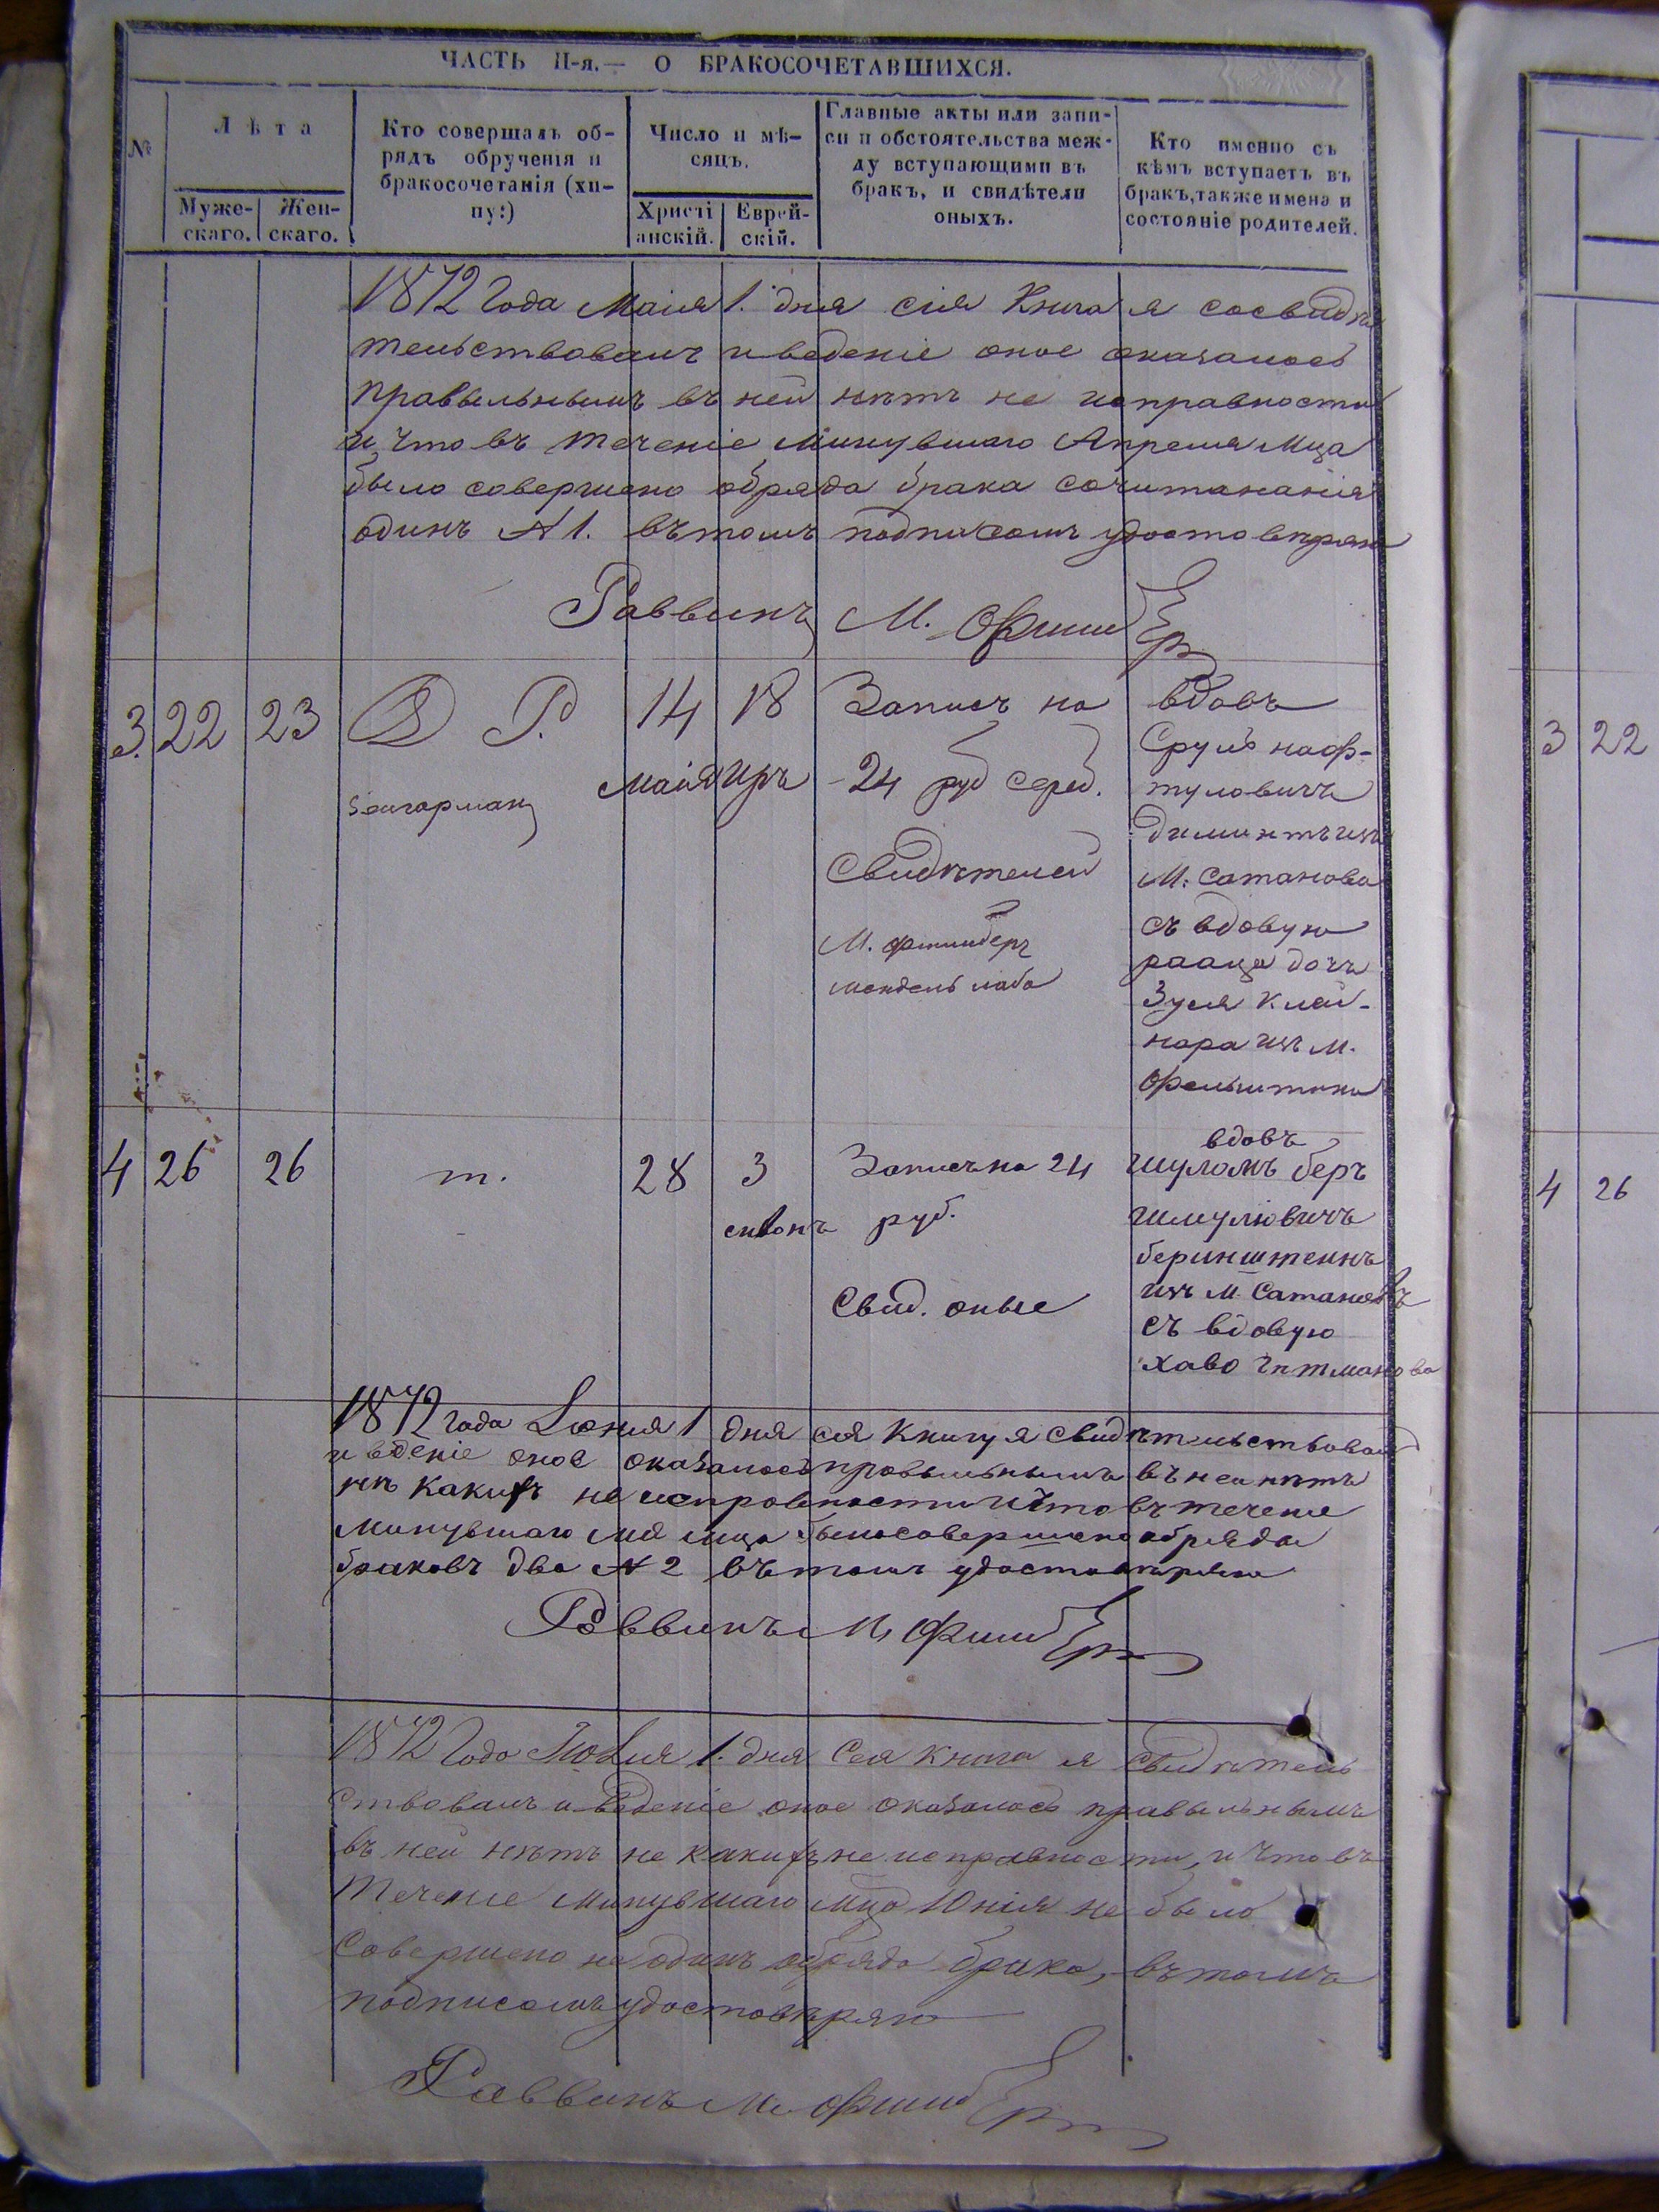 ЧАСТЬ II-я.— О БРАКОСОЧЕТАВШИХСЯ.
№
Лѣта
Муже-
скаго.
Жен-
скаго.
Кто совершалъ об-
рядъ обрученія и
бракосочетанія (хи-
пу:)
Число и мѣ-
сяцъ.
Христі
анскій.
Еврей-
скій.
Главные акты или запи-
си и обстоятельства меж-
ду вступающими въ
бракъ, и свидѣтели
оныхъ.
Кто именно съ
кѣмъ вступаетъ въ
бракъ, также имена и
состояніе родителей.
1872 Года Маія 1. дня сія Книга я сосвидѣ
тельствовалъ и веденіе оное оказалось
правыльнымъ въ ней нѣтъ не исправности
и что въ теченіе минувшаго Апреля Мца
было совершено обряда брака сочитанания
одинъ № 1. въ томъ подписомъ удостовѣряю
Раввинъ М. Фишбер
3. 22 23
Д. Р.
14 18
маія иръ
Запись на
24 руб сереб.
Свидѣтелей
М. фишберъ
мендель лаба
вдовъ
Сруль наф-
туловичъ
диминтъ изъ
М. Сатанова
съ вдовую
дочъ
Зуся Клей-
нера изъ м.
Фельштина
4 26 26
т.
28 3
сивонъ
Запись на 24
руб.
Свид. оные
вдовъ
шуломъ беръ
шмулювичъ
беринштеинъ
изъ м. Сатановъ
съ вдовую
хаво гитманова
1872 года Іюния 1 дня сія Книгу я свидѣтельствовал
и веденіе оное оказалось правыльнымъ въ неи нѣтъ
нѣ какихъ не исправности и что въ течение
минувшаго мця было совершено обряда
браковъ два № 2 въ томъ удостовѣряю
Раввинъ М. Фишбер
1872 Года Июлия 1. дня Сея книга я свидѣтель
ствовалъ и веденіе оное оказалось правыльнымъ
въ ней нѣтъ не какихъ не исправности, и что въ
течение минувшаго Мца Юнія не было
совершено не одинъ обряда брака, въ томъ
подписомъ удостовѣряю
Раввинъ М. Фишбер
3 22
4 26